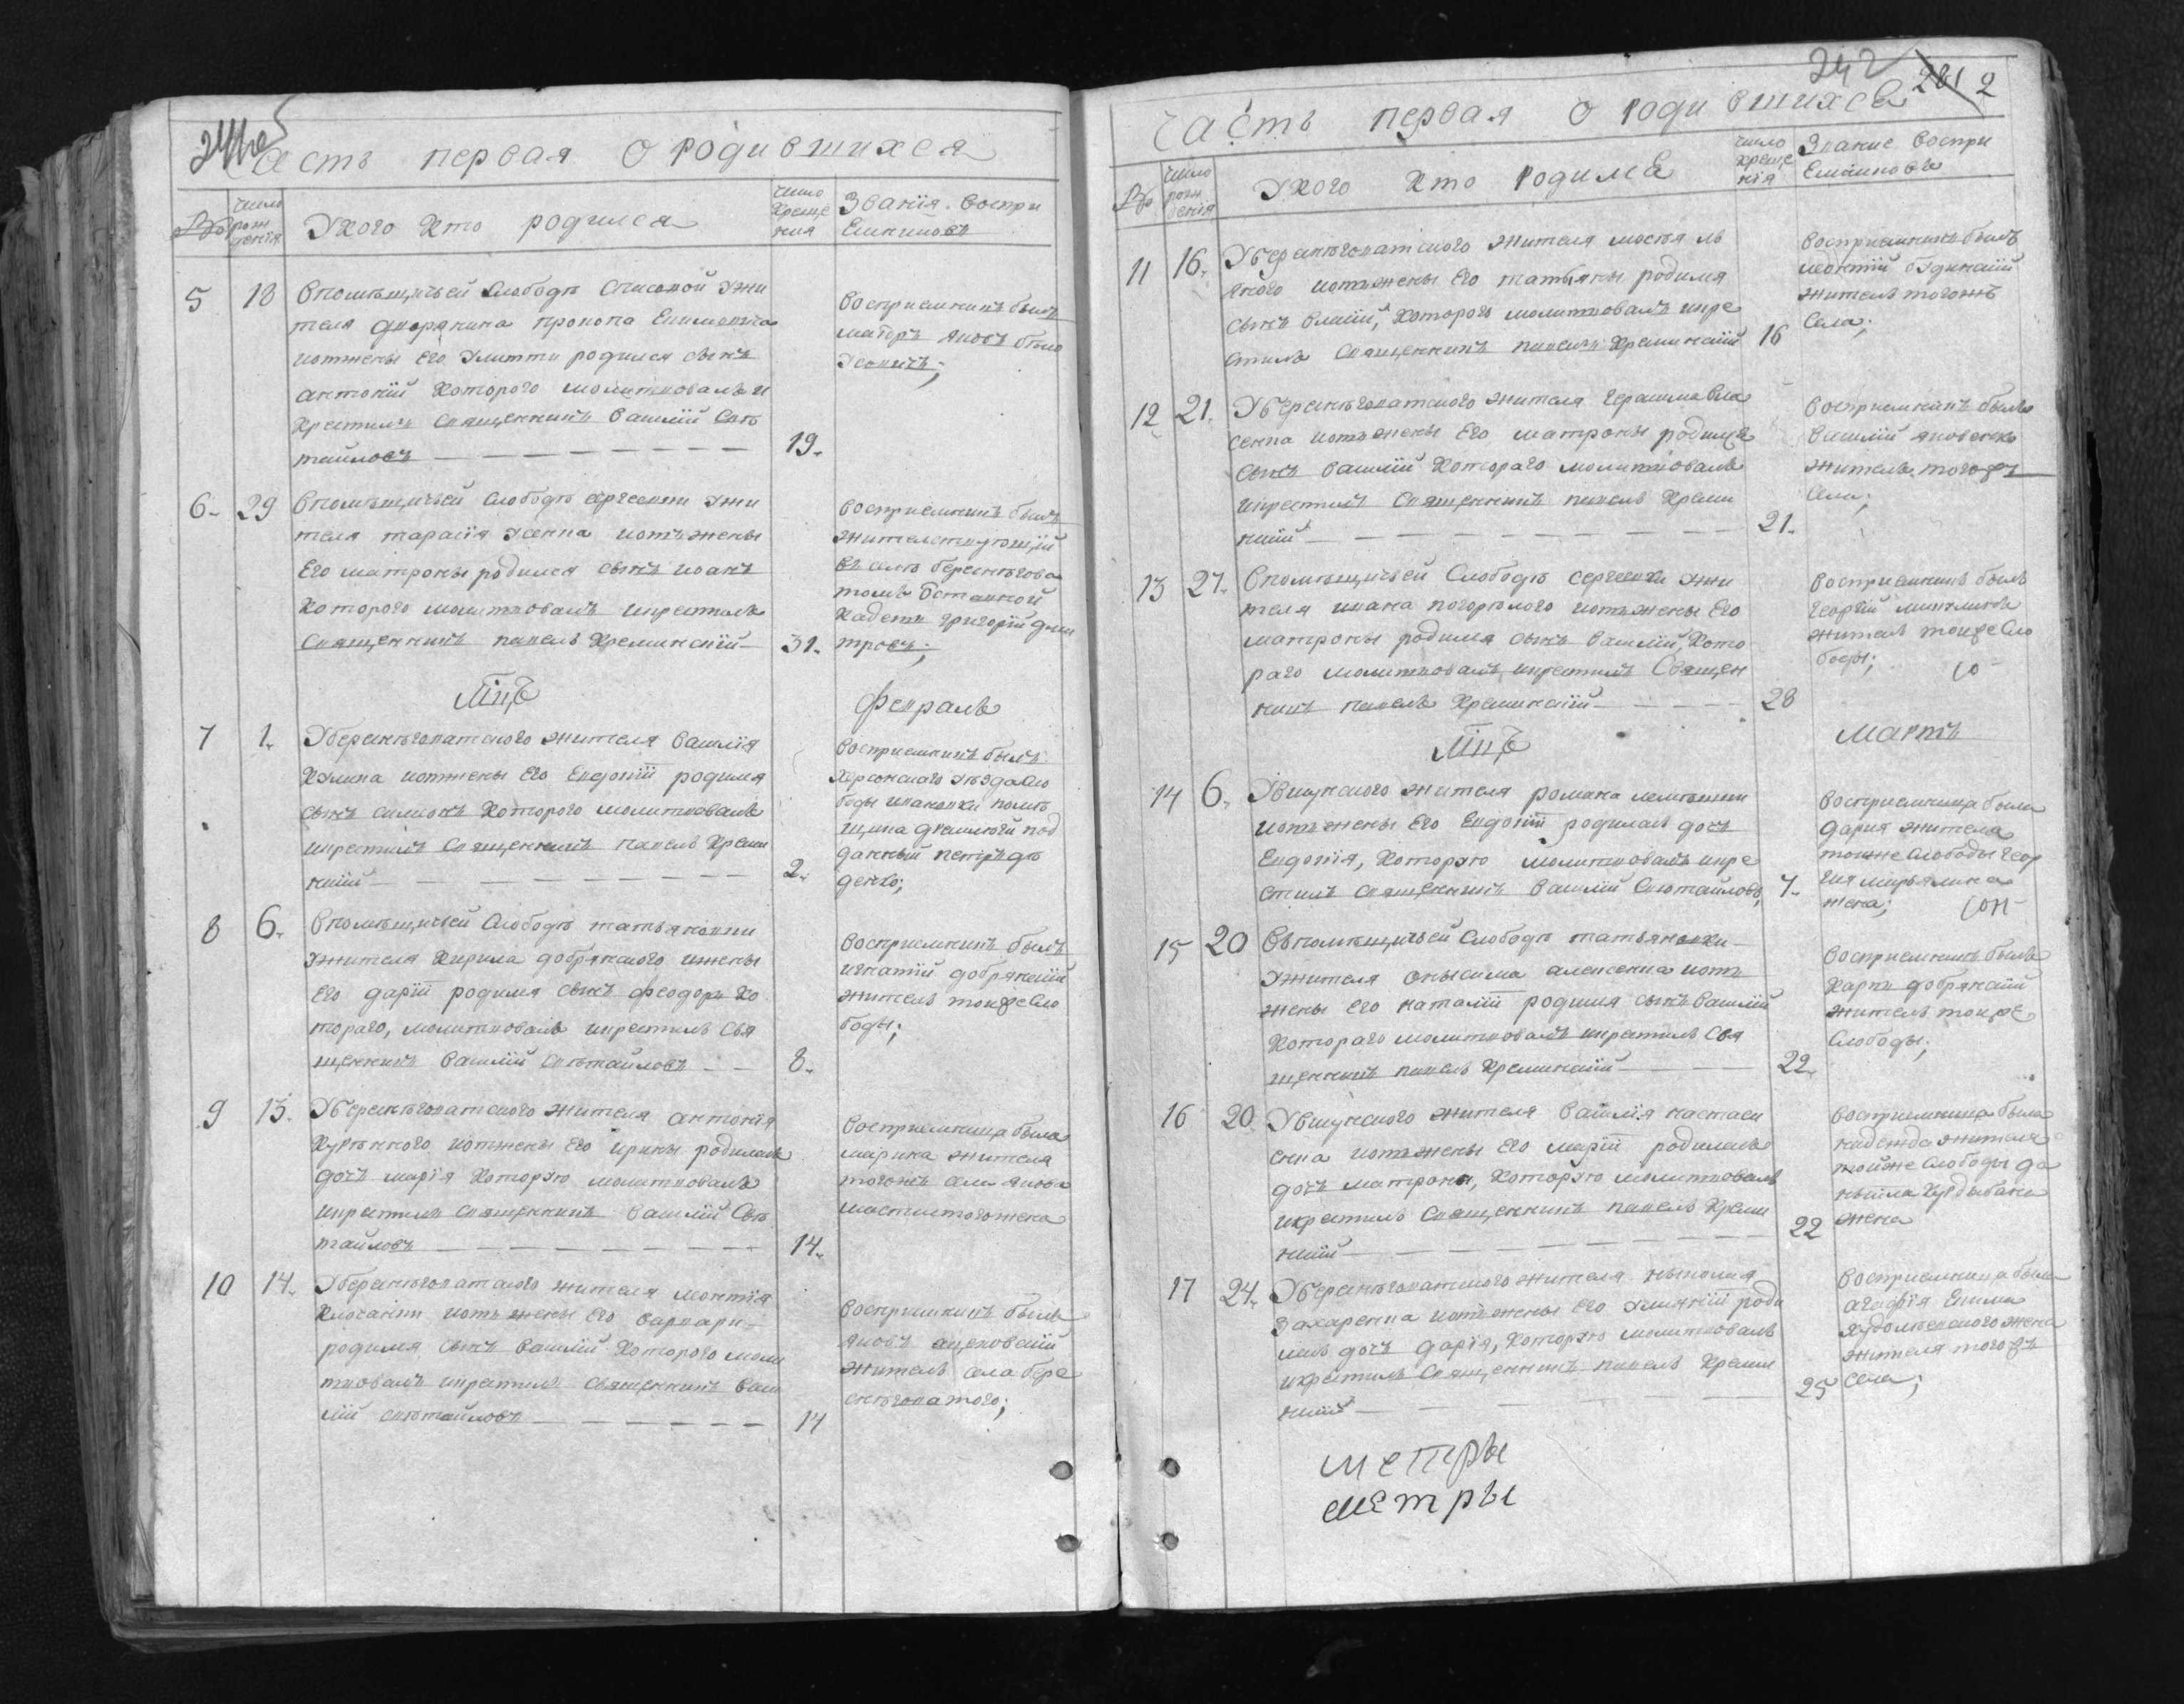 Часть первая О родившихся
№
число рож дения
Укого Кто родился
число Креще ния
Званїя Воспри Емниковъ
5 18 Впомѣщичьей Слободѣ Спасовой ужи
теля дворянина прокопа Екимовича
иотжены Его Улитти родился сынъ
антонїй Которого молитвовалъ и
Крестилъ Священникъ Василїй Свѣ
тайловъ 19.
Восприемникъ былъ
маїоръ Яковъ
6. 29 Впомѣщичьей Слободѣ сергеевки ужи
теля тарасїя Усенка иотъжены
Его матроны родился сынъ иоанъ
Которого молитвовалъ икрестилъ
Священникъ павелъ Кременскїй 31.
Восприемникъ былъ
жительствующїй
въ селѣ береснѣгова
томъ отставной
Кадетъ григорїй дми
тровъ;
Мцъ Февраль
7 1. Уберснѣговатского жителя василїя
Кулика иотжены Его Евдокїи родился
сынъ симионъ Которого молитвовалъ
икрестилъ священникъ павелъ Кремен
скїй 2.
Восприемникъ былъ
Херсонского уѣзда Сло
боды ивановки помѣ
щика под
данный петръ дѣ
денко;
8 6. Впомѣщичьей Слободѣ татьяновки
ужителя Кирила добрянского ижены
Его дарїи родился сынъ феодоръ Ко
тораго, молитвовалъ икрестилъ Свя
щенникъ Василїй Свѣтайловъ 8.
Восприемникъ былъ
игнатїй добрянскїй
житель тойже Сло
боды;
9 13. Уберснѣговатского жителя антонїя
Курѣнного иотжены Его ирины родилась
дочъ марїя Которую молитвовалъ
икрестилъ священникъ Василїй Свѣ
тайловъ 14.
Восприемница была
марина жителя
тогожъ села Якова
жена
10 14. Уберснѣговатского жителя леонтїя
иотъ жены Его варвари
родился сынъ василїй Которого моли
твовалъ икрестилъ священникъ Васи
лїй Свѣтайловъ 14
Восприемникъ былъ
Яковъ
житель села бере
снѣговатого;
242 2
Часть первая О родившихся
№
число рож денїя
Укого Кто родился
число Креще нїя
Звание Воспри Емниковъ
11 16. Уберснѣговатского жителя
иотжены Его татьяны родился
сынъ власїй, Которого молитвовалъ икре
стилъ Священникъ павелъ Кременскїй 16
Восприемникъ былъ
леонтїй будинскїй
житель тогожъ
Села;
12 21. Уберснѣговатского жителя герасима вла
сенка иотъжены Его матроны родился
сынъ василїй Котораго молитвовалъ
икрестилъ Священникъ павелъ Кремен
скїй 21.
Восприемникъ былъ
василїй яковенко
житель тогожъ
Села;
13 27. Впомѣщичьей Слободѣ сергеевки ужи
теля ивана погорѣлого иотжены Его
матроны родился сынъ василїй, Кото
раго молитвовалъ икрестилъ Священ
никъ павелъ Кременскїй 28
Восприемникъ былъ
георгїй
житель тойже Сло
боды;
Мцъ Мартъ
14 6. Увисунского жителя романа
иотъжены Его Евдокїи родилась дочъ
Евдокїя, Которую молитвовалъ икре
стилъ священникъ Василїй Свѣтайловъ, 7.
Восприемница была
дария жителя
тойже Слободы геор
гия
жена;
15 20 Впомѣщичьей Слободѣ татьяновки
ужителя онысима алексенка иотъ
жены Его наталїи родился сынъ василїй
Котораго молитвовалъ икрестилъ Свя
щенникъ павелъ Кременскїй 22.
Восприемникъ былъ
Карпъ добрянскїй
житель тойже
Слободы;
16 20 Увисунского жителя василїя настаси
енка иотъжены Его марїи родилась
дочъ матрона, Которую молитвовалъ
икрестилъ Священникъ павелъ Кремен
скїй 22
Восприемница была
надежда жителя
тойже Слободы да
нила
жена
17 24. Уберснѣговатского жителя
Захаренка иотъжены Его улиянїи роди
лась дочъ дарїя, Которую молитвовалъ
икрестилъ Священникъ павелъ Кремен
скїй 25
Восприемница была
агафїя Екима
жена
жителя тогожъ
Села;
метры
метры